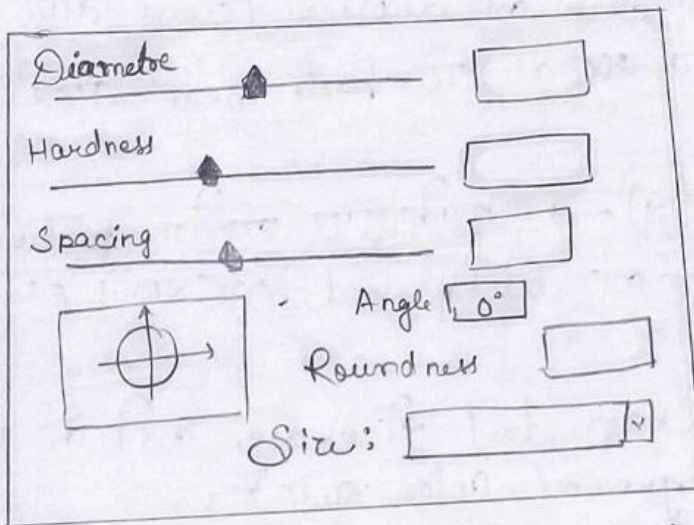 Diametre
Hardness
Spacing
Angle 0°
Roundness
Size: